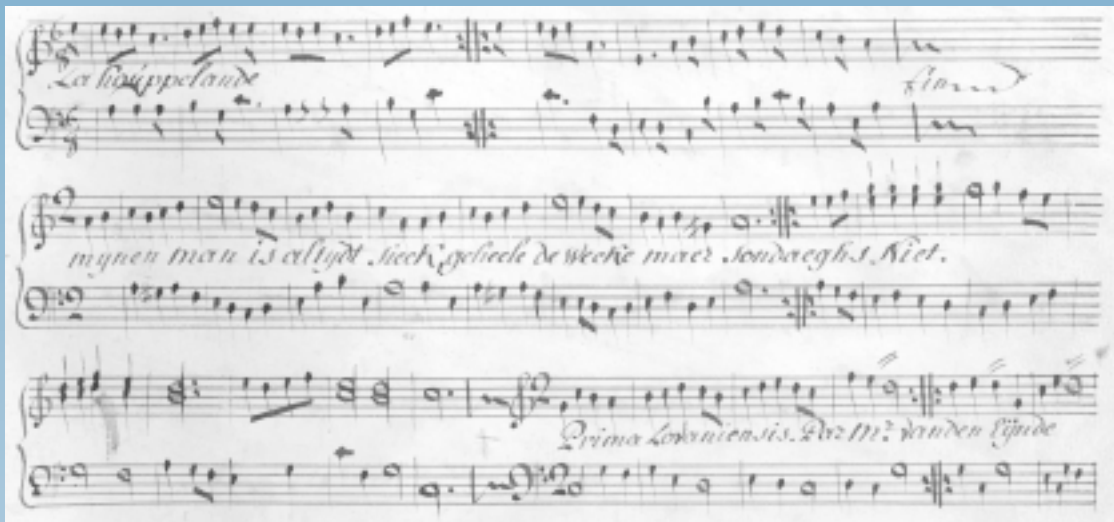 La houppelande
fin
mynen man is altydt sieck geheele de weeke maer sondaeghs Niet.
Prima Lovaniensis. Par Mr. vanden Eijnde